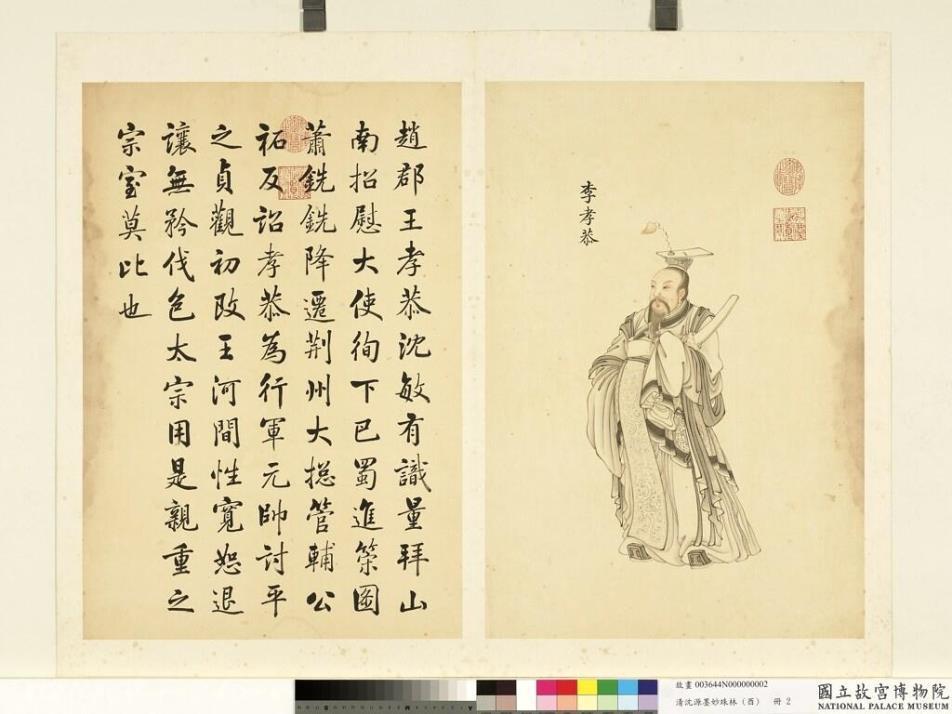 李孝恭
趙郡王孝恭沈敏有識量拜山
南招慰大使徇下巴蜀進策圖
蕭銑銑降遷荆州大揔管輔公
祏反詔孝恭為行軍元帥討平
之貞觀初改王河間性寬恕退
讓無矜伐色太宗用是親重之
宗室莫比也
故畫 003644N000000002
清沈源墨妙珠林(酉) 冊 2
國立故宮博物院
NATIONAL PALACE MUSEUM